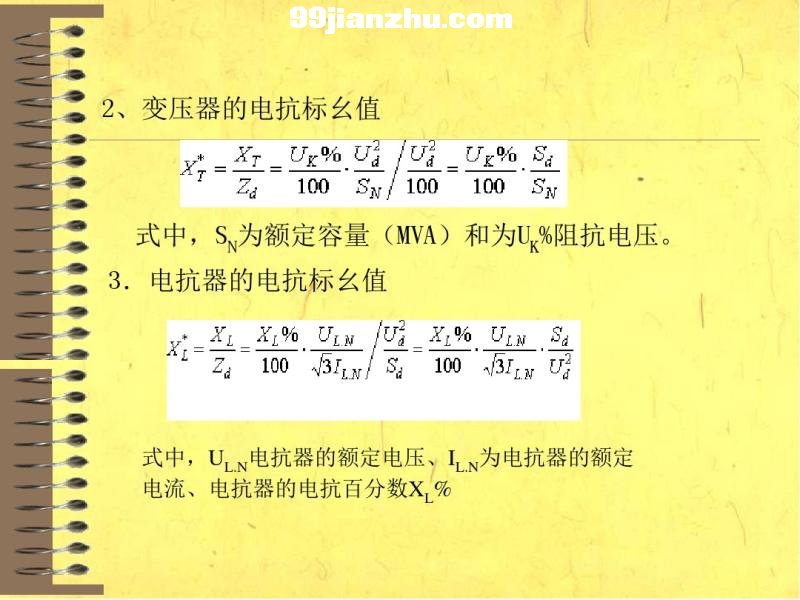 99jianzhu.com
2、变压器的电抗标幺值
X_T^* = \frac{X_T}{Z_d} = \frac{U_K\%}{100} \cdot \frac{U_d^2}{S_N} / \frac{U_d^2}{100} = \frac{U_K\%}{100} \cdot \frac{S_d}{S_N}
式中，S_N为额定容量（MVA）和为U_K%阻抗电压。
3．电抗器的电抗标幺值
X_L^* = \frac{X_L}{Z_d} = \frac{X_L\%}{100} \cdot \frac{U_{L.N}}{\sqrt{3}I_{L.N}} / \frac{U_d^2}{S_d} = \frac{X_L\%}{100} \cdot \frac{U_{L.N}}{\sqrt{3}I_{L.N}} \cdot \frac{S_d}{U_d^2}
式中，U_{L.N}电抗器的额定电压、I_{L.N}为电抗器的额定
电流、电抗器的电抗百分数X_L%